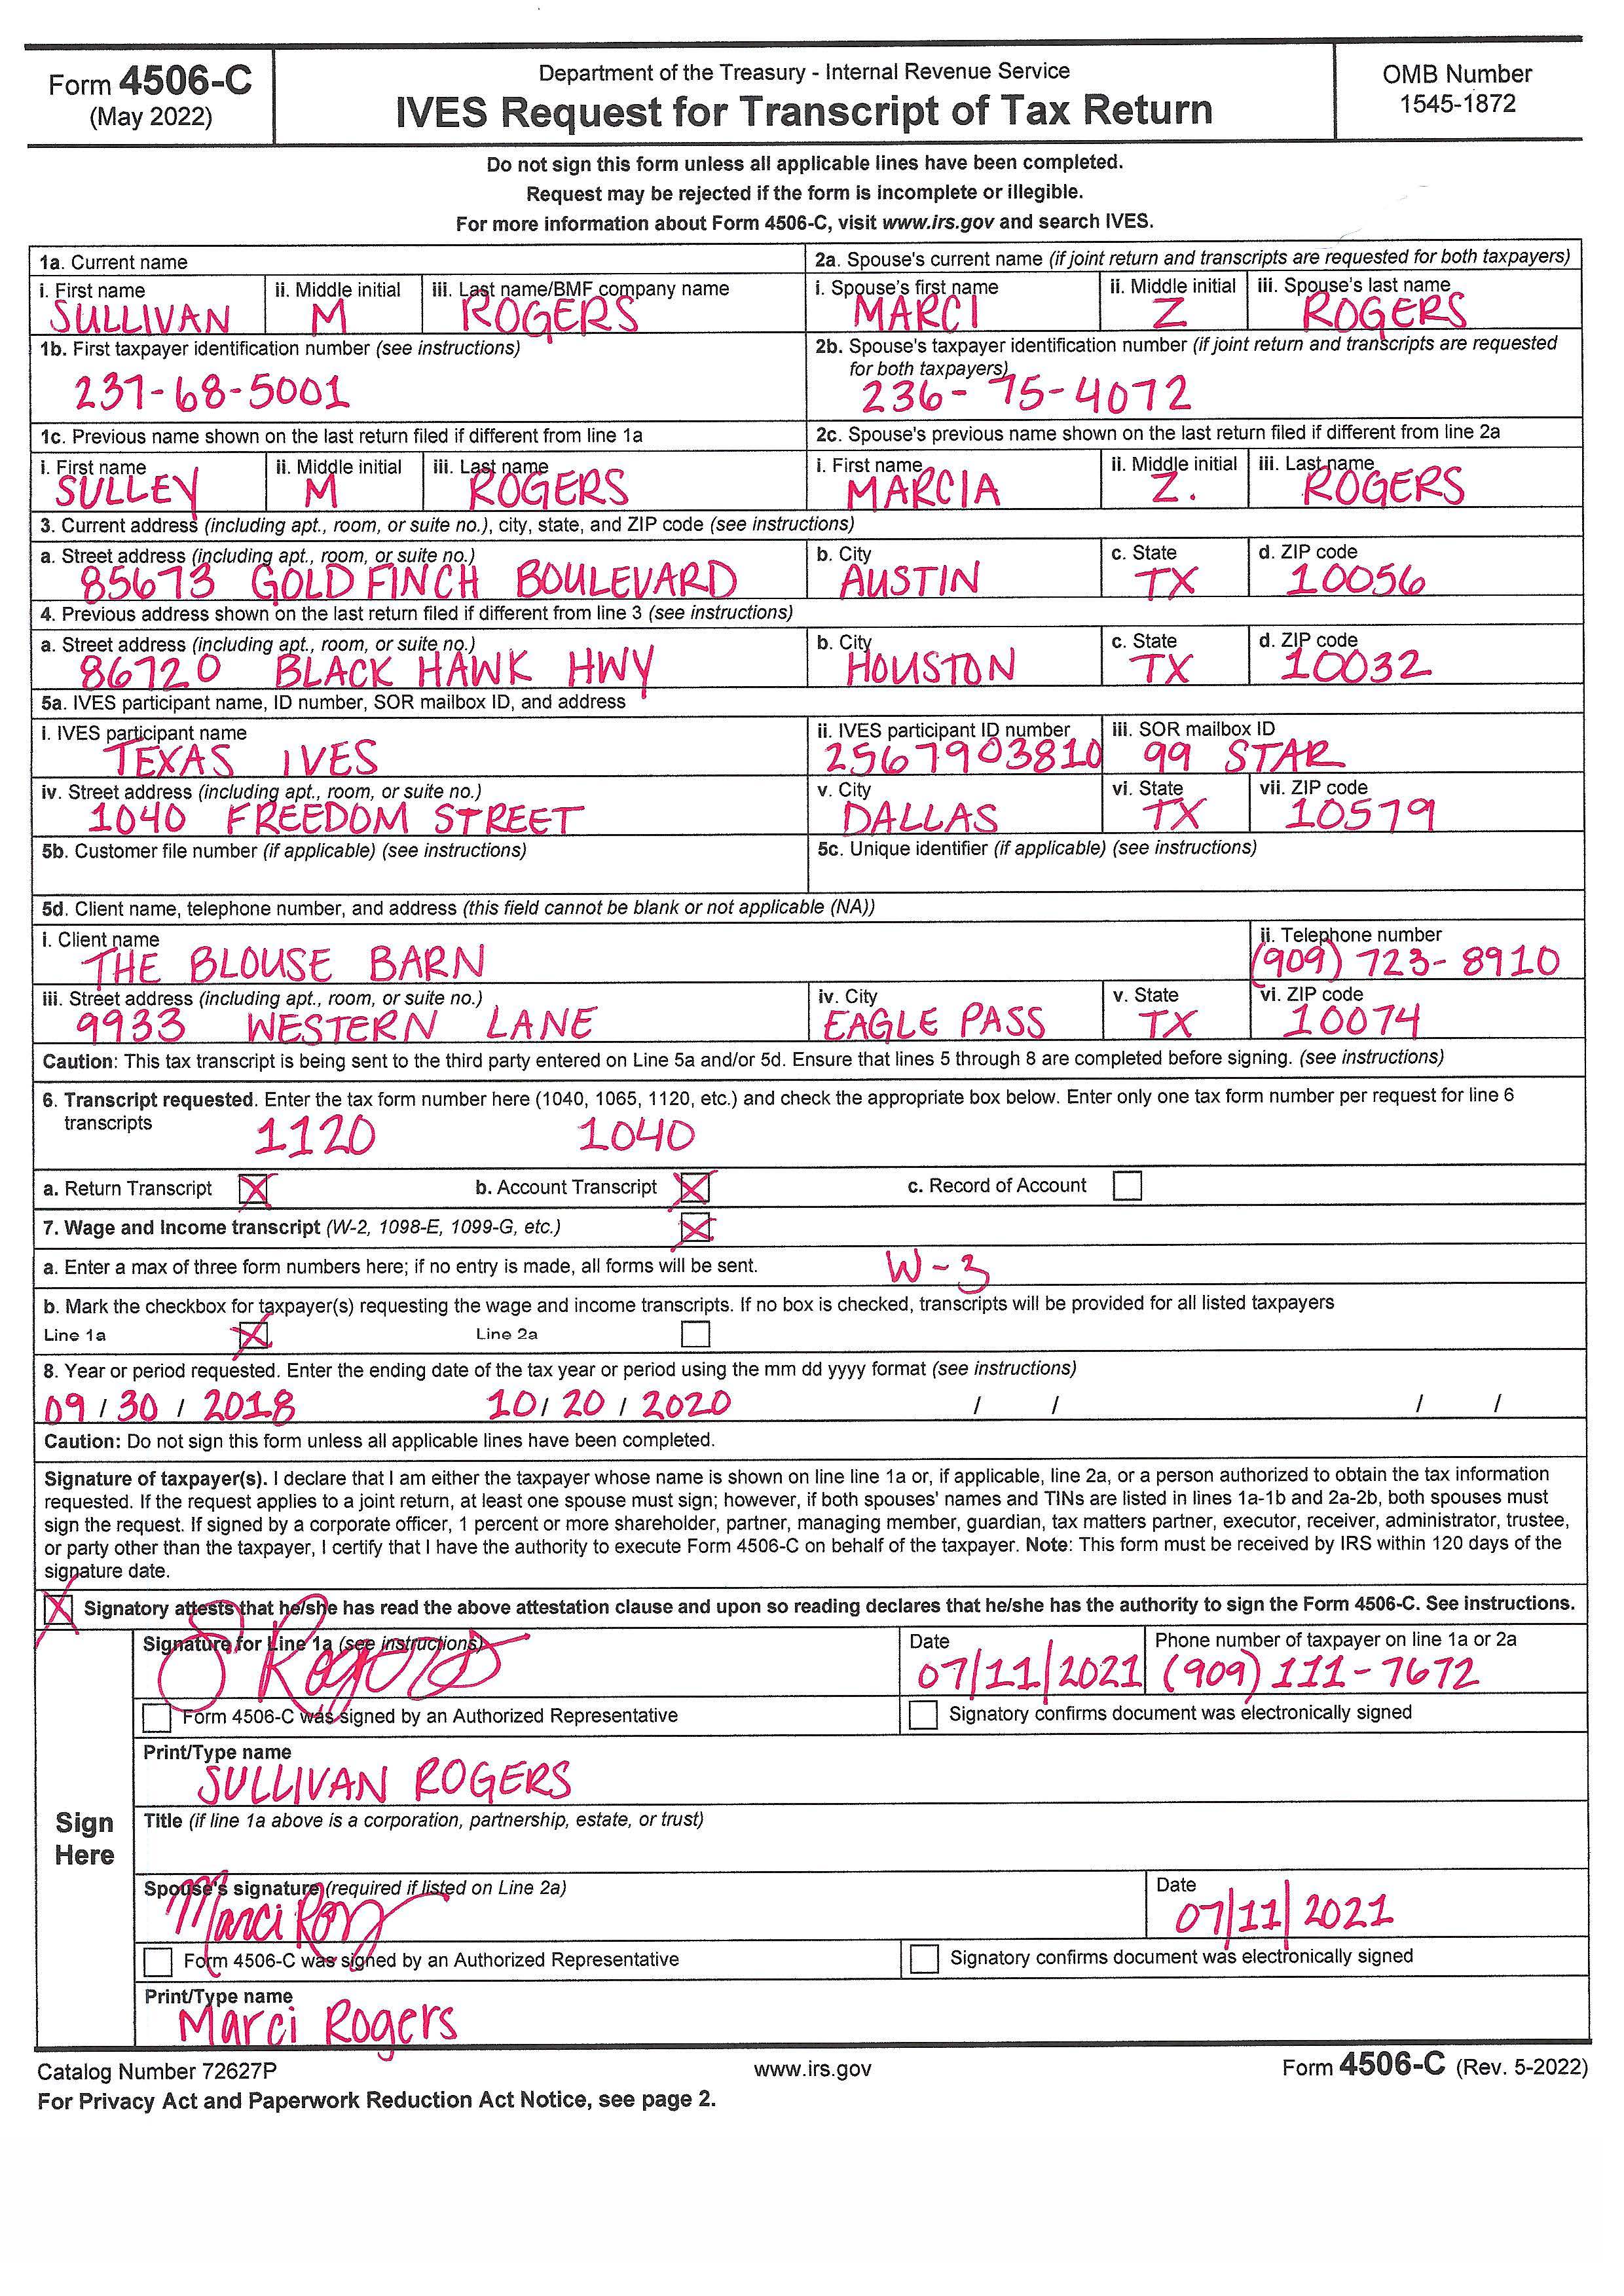 Form 4506-C
(May 2022)
Department of the Treasury - Internal Revenue Service
IVES Request for Transcript of Tax Return
OMB Number
1545-1872
Do not sign this form unless all applicable lines have been completed.
Request may be rejected if the form is incomplete or illegible.
For more information about Form 4506-C, visit www.irs.gov and search IVES.
1a. Current name
2a. Spouse's current name (if joint return and transcripts are requested for both taxpayers)
i. First name ii. Middle initial iii. Last name/BMF company name i. Spouse's first name ii. Middle initial iii. Spouse's last name
SULLIVAN M ROGERS MARCI Z ROGERS
1b. First taxpayer identification number (see instructions)
237-68-5001
2b. Spouse's taxpayer identification number (if joint return and transcripts are requested
for both taxpayers)
236-75-4072
1c. Previous name shown on the last return filed if different from line 1a
2c. Spouse's previous name shown on the last return filed if different from line 2a
i. First name ii. Middle initial iii. Last name i. First name ii. Middle initial iii. Last name
SULLEY M ROGERS MARCIA Z. ROGERS
3. Current address (including apt., room, or suite no.), city, state, and ZIP code (see instructions)
a. Street address (including apt., room, or suite no.) b. City c. State d. ZIP code
85673 GOLD FINCH BOULEVARD AUSTIN TX 10056
4. Previous address shown on the last return filed if different from line 3 (see instructions)
a. Street address (including apt., room, or suite no.) b. City c. State d. ZIP code
86720 BLACK HAWK HWY HOUSTON TX 10032
5a. IVES participant name, ID number, SOR mailbox ID, and address
i. IVES participant name ii. IVES participant ID number iii. SOR mailbox ID
TEXAS IVES 2567903810 99 STAR
iv. Street address (including apt., room, or suite no.) v. City vi. State vii. ZIP code
1040 FREEDOM STREET DALLAS TX 10579
5b. Customer file number (if applicable) (see instructions)
5c. Unique identifier (if applicable) (see instructions)
5d. Client name, telephone number, and address (this field cannot be blank or not applicable (NA))
i. Client name ii. Telephone number
THE BLOUSE BARN (909) 723-8910
iii. Street address (including apt., room, or suite no.) iv. City v. State vi. ZIP code
9933 WESTERN LANE EAGLE PASS TX 10074
Caution: This tax transcript is being sent to the third party entered on Line 5a and/or 5d. Ensure that lines 5 through 8 are completed before signing. (see instructions)
6. Transcript requested. Enter the tax form number here (1040, 1065, 1120, etc.) and check the appropriate box below. Enter only one tax form number per request for line 6
transcripts
1120 1040
a. Return Transcript X b. Account Transcript X c. Record of Account
7. Wage and Income transcript (W-2, 1098-E, 1099-G, etc.) X
a. Enter a max of three form numbers here; if no entry is made, all forms will be sent. W-3
b. Mark the checkbox for taxpayer(s) requesting the wage and income transcripts. If no box is checked, transcripts will be provided for all listed taxpayers
Line 1a X Line 2a
8. Year or period requested. Enter the ending date of the tax year or period using the mm dd yyyy format (see instructions)
09 / 30 / 2018 10 / 20 / 2020 / / / /
Caution: Do not sign this form unless all applicable lines have been completed.
Signature of taxpayer(s). I declare that I am either the taxpayer whose name is shown on line line 1a or, if applicable, line 2a, or a person authorized to obtain the tax information
requested. If the request applies to a joint return, at least one spouse must sign; however, if both spouses' names and TINs are listed in lines 1a-1b and 2a-2b, both spouses must
sign the request. If signed by a corporate officer, 1 percent or more shareholder, partner, managing member, guardian, tax matters partner, executor, receiver, administrator, trustee,
or party other than the taxpayer, I certify that I have the authority to execute Form 4506-C on behalf of the taxpayer. Note: This form must be received by IRS within 120 days of the
signature date.
X Signatory attests that he/she has read the above attestation clause and upon so reading declares that he/she has the authority to sign the Form 4506-C. See instructions.
Sign
Here
Signature for Line 1a (see instructions) Date Phone number of taxpayer on line 1a or 2a
S Rogers 07/11/2021 (909) 111-7672
Form 4506-C was signed by an Authorized Representative Signatory confirms document was electronically signed
Print/Type name
SULLIVAN ROGERS
Title (if line 1a above is a corporation, partnership, estate, or trust)
Spouse's signature (required if listed on Line 2a) Date
Marci Rog 07/11/2021
Form 4506-C was signed by an Authorized Representative Signatory confirms document was electronically signed
Print/Type name
Marci Rogers
Catalog Number 72627P www.irs.gov Form 4506-C (Rev. 5-2022)
For Privacy Act and Paperwork Reduction Act Notice, see page 2.